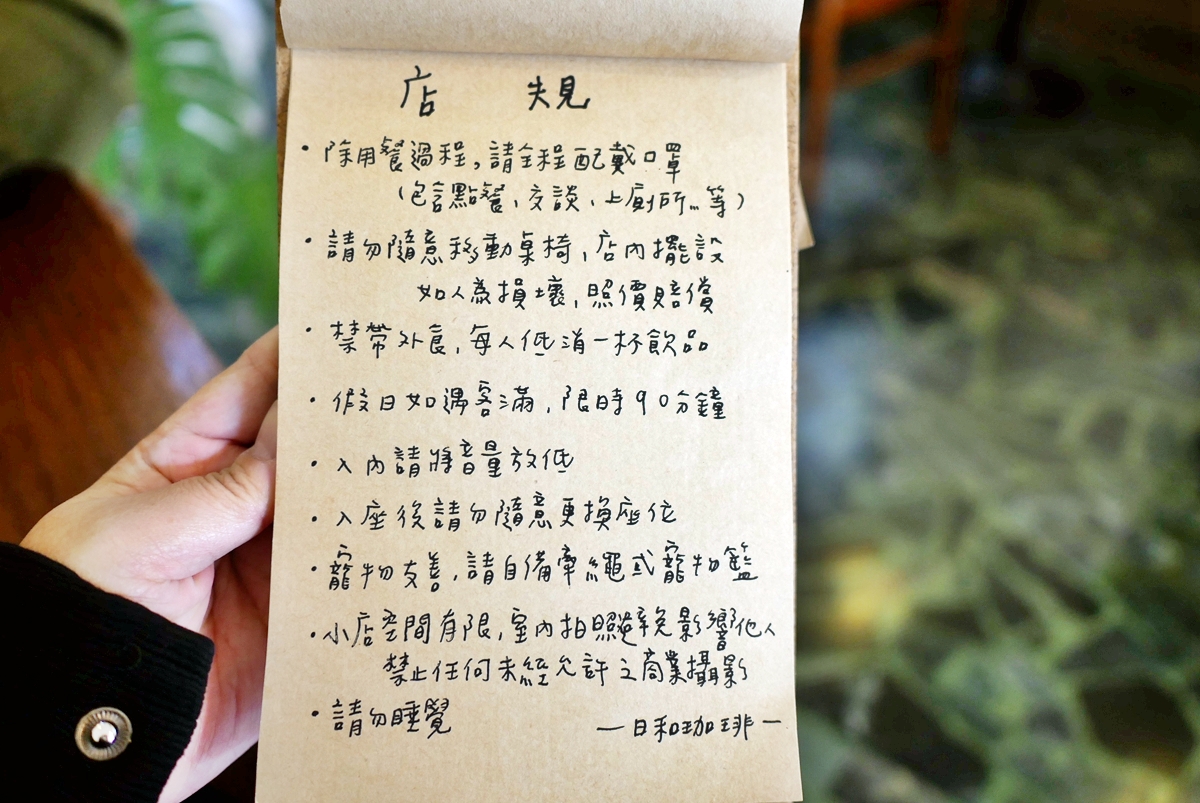 店 規
・除用餐過程,請全程配戴口罩
(包含點餐、交談、上廁所...等)
・請勿隨意移動桌椅,店內擺設
如人為損壞,照價賠償
・禁帶外食,每人低消一杯飲品
・假日如遇客滿,限時90分鐘
・入內請將音量放低
・入座後請勿隨意更換座位
・寵物友善,請自備牽繩或寵物籃
・小店空間有限,室內拍照避免影響他人
禁止任何未經允許之商業攝影
・請勿睡覺
—日和珈琲—